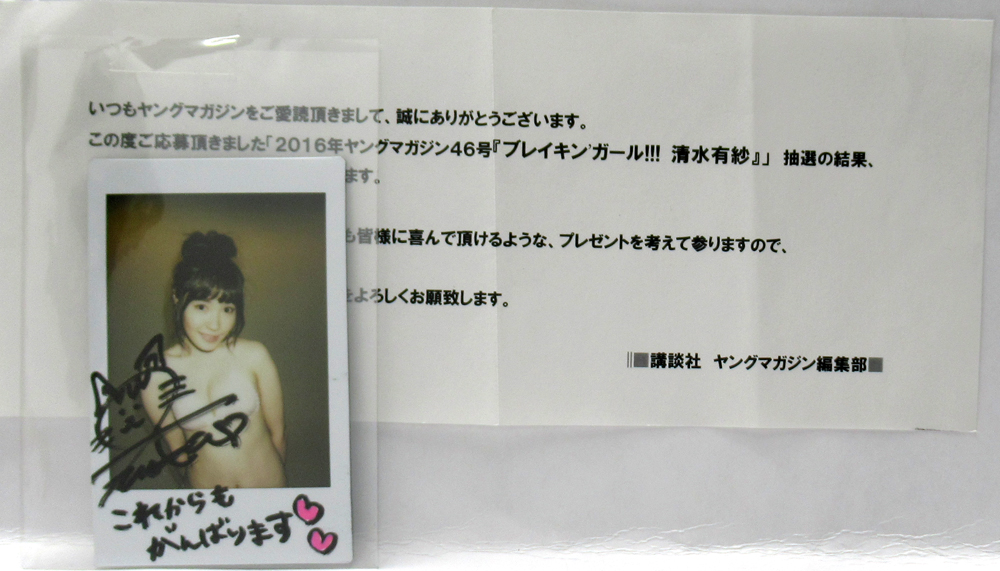 いつもヤングマガジンをご愛読頂きまして、誠にありがとうございます。
この度ご応募頂きました「2016年ヤングマガジン46号『ブレイキン'ガール!!! 清水有紗』」 抽選の結果、
ます。
も皆様に喜んで頂けるような、プレゼントを考えて参りますので、
をよろしくお願致します。
■講談社 ヤングマガジン編集部■
これからも
がんばります